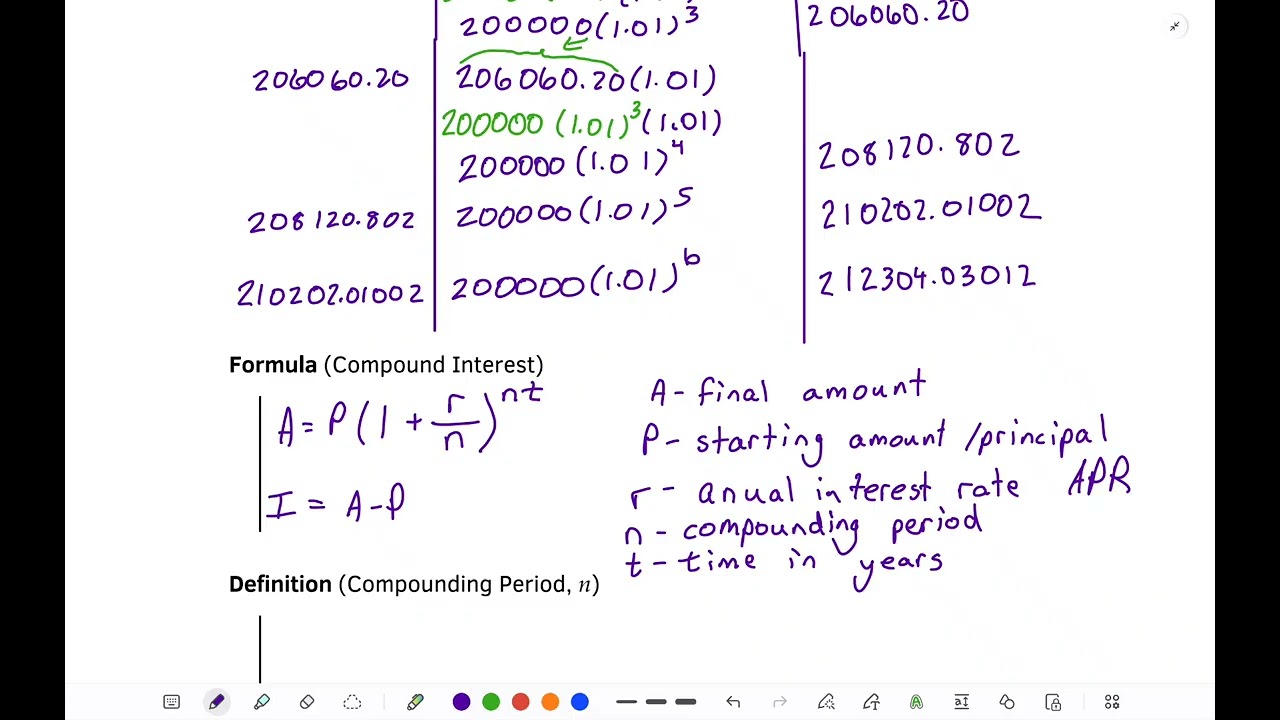 200000(1.01)³
206060.20
206060.20
206060.20(1.01)
200000 (1.01)³(1.01)
200000 (1.01)⁴
208120.802
208120.802
200000(1.01)⁵
210202.01002
210202.01002
200000(1.01)⁶
212304.03012
Formula (Compound Interest)
A = P(1 + r/n)^nt
I = A-P
A - final amount
P - starting amount/principal
r - anual interest rate APR
n - compounding period
t - time in years
Definition (Compounding Period, n)